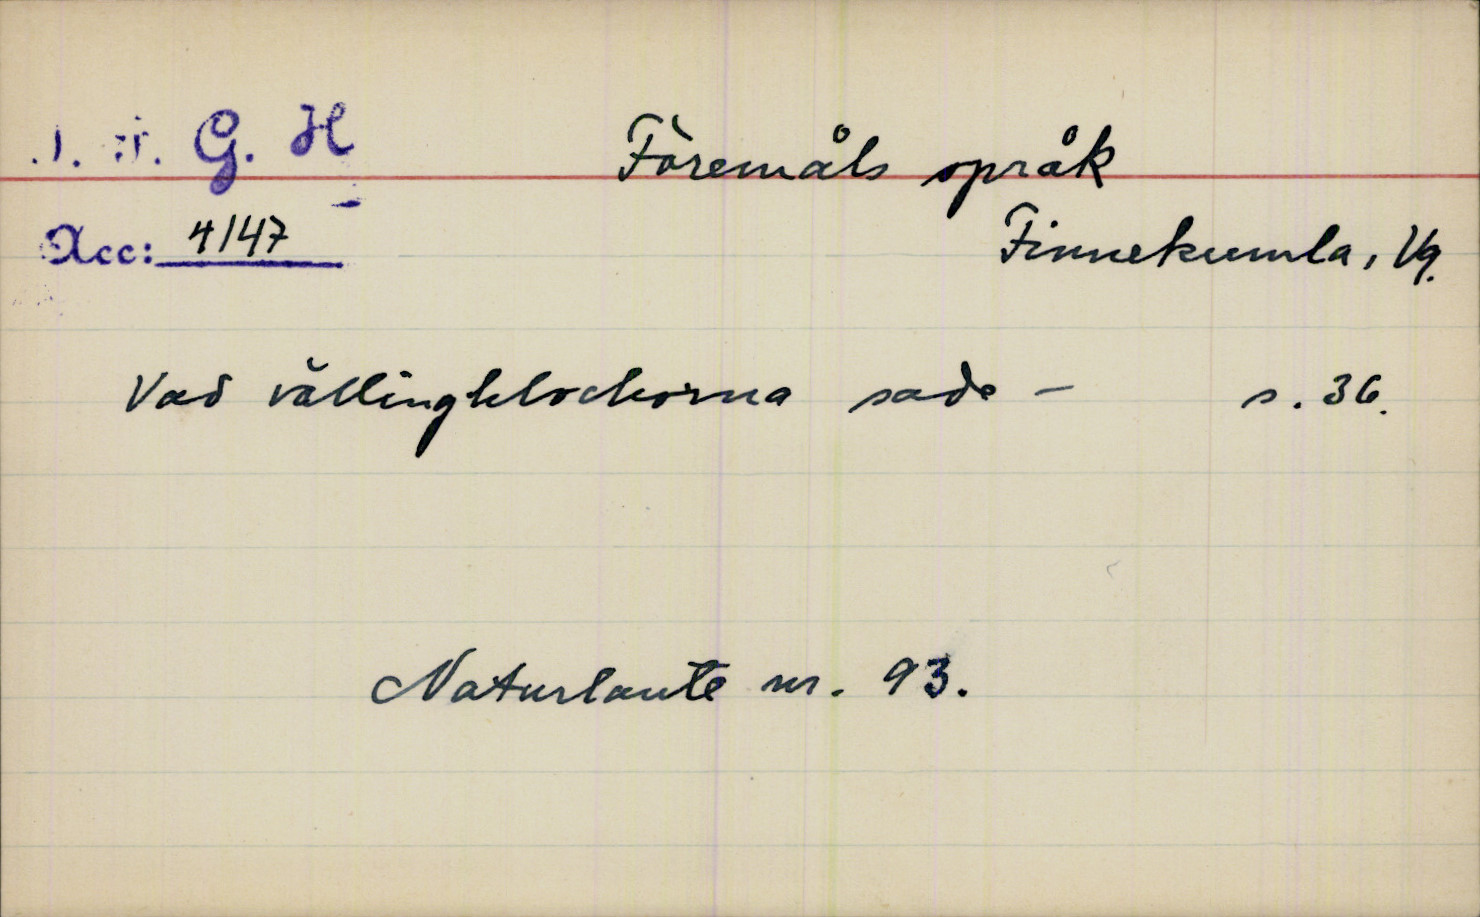 G. H
Föremåls språk
Acc: 4147
Finnekumla, Vg.
Vad vällingklockorna sade – s. 36.
Naturlaute nr. 93.